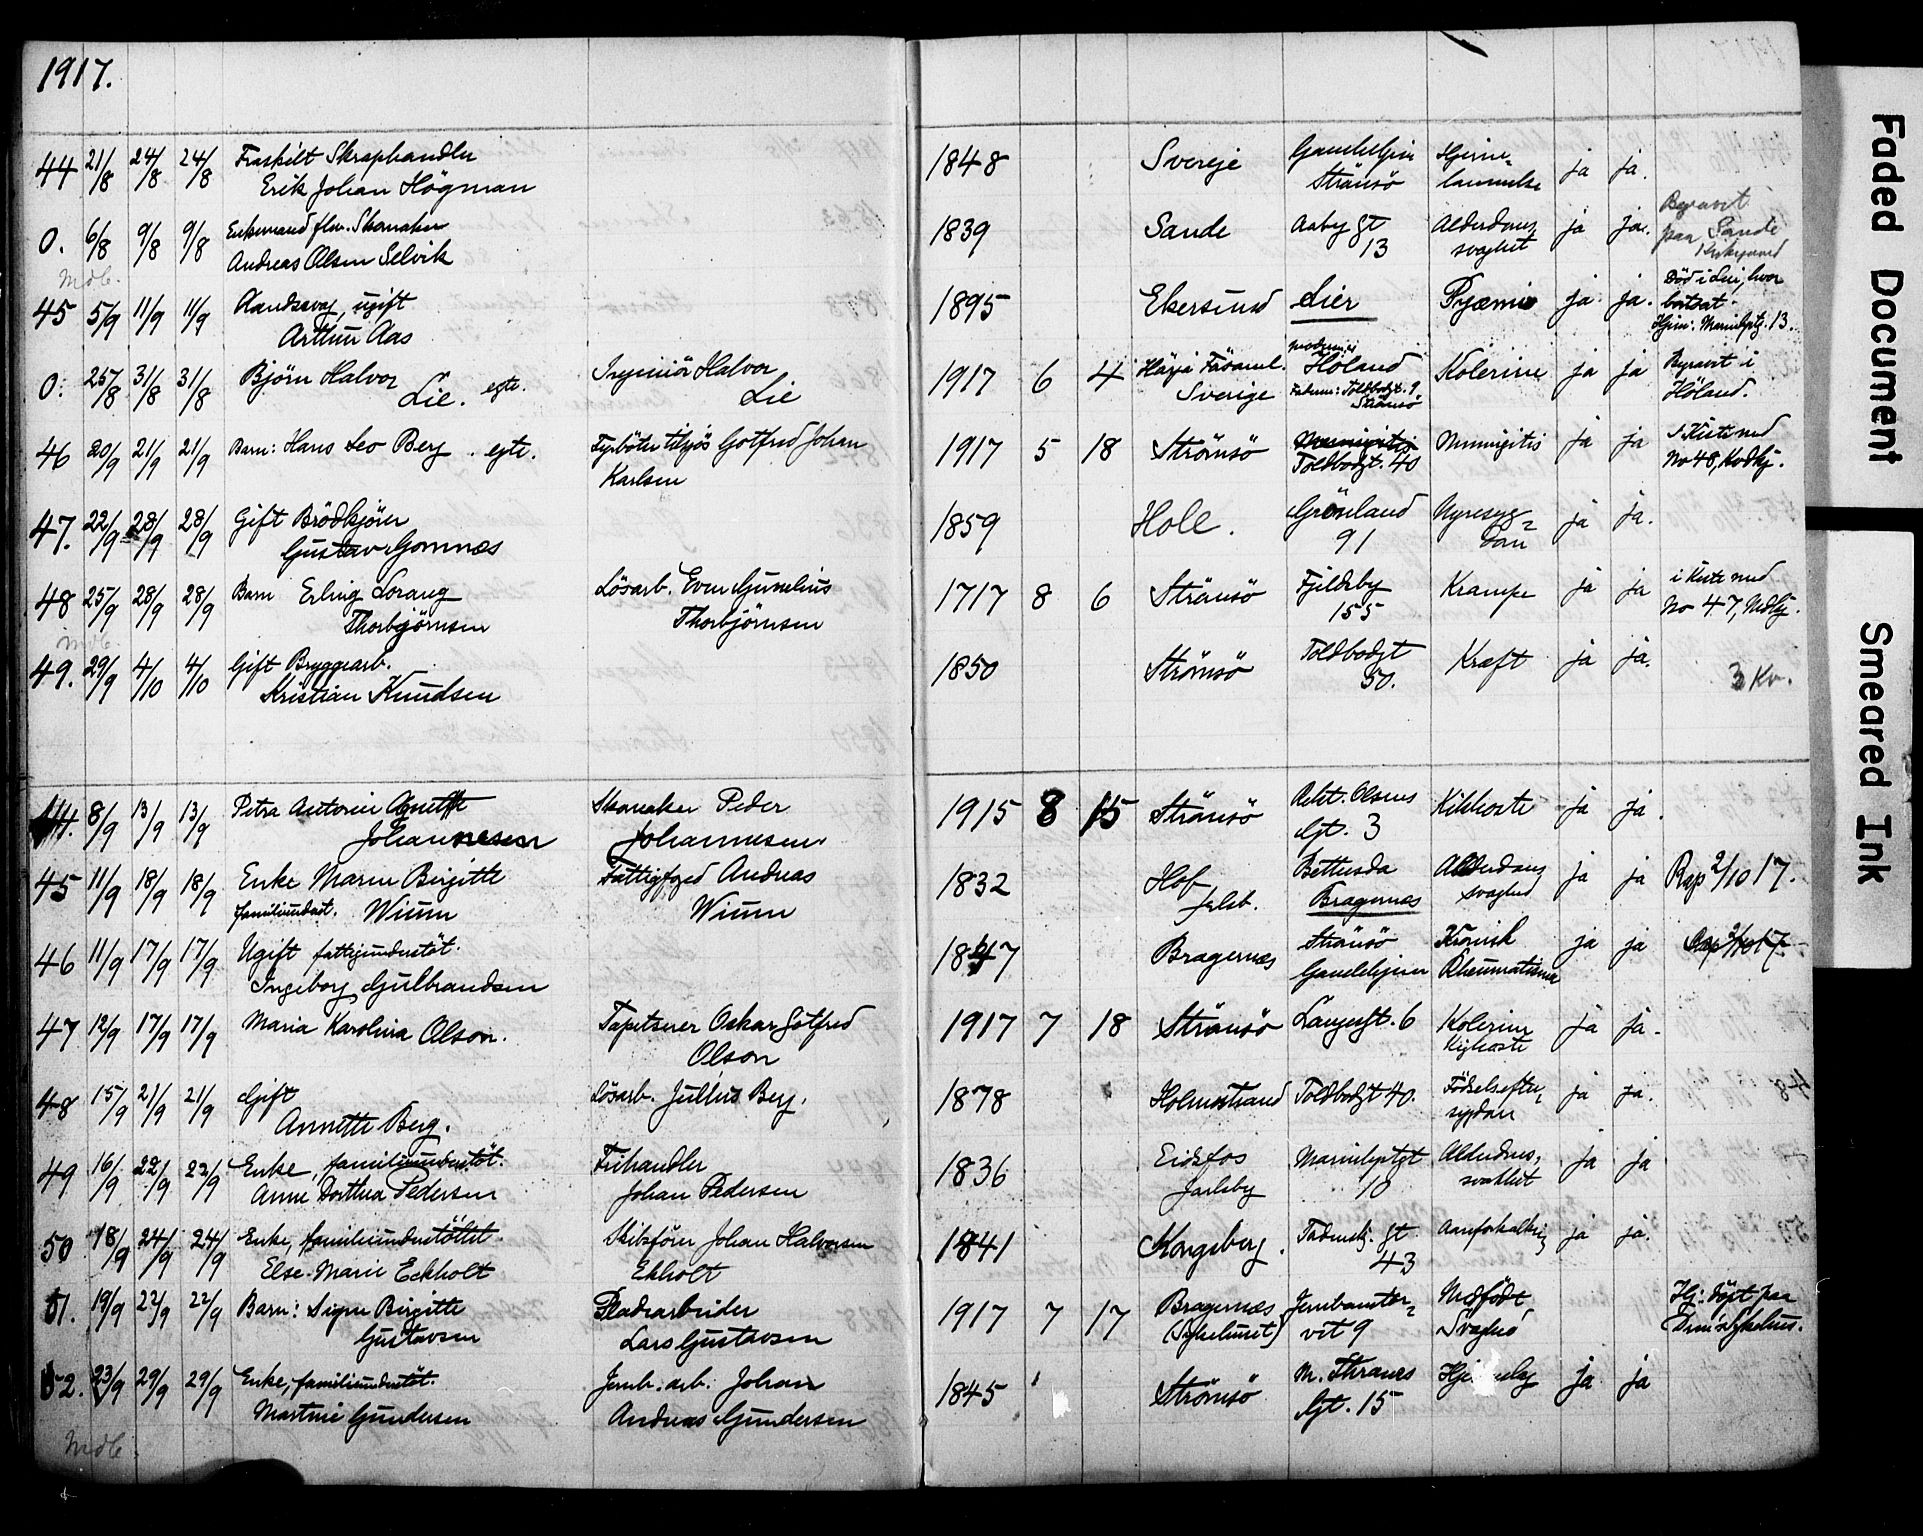 1917.
44 21/8 24/8 24/8 Fraskilt Skraphandler 1848 Sverige Gamlehjem Hjerne- ja ja.
Erik Johan Högman Strömsö lammelse
0. 6/8 9/8 9/8 Enkemand flev. Skomaker 1839 Sande Aaby gt Alderdoms ja ja. Begravet
Andreas Olsen Selvik 13 svaghet paa Sande
Kirkegaard
Mdb.
45 5/9 11/9 11/9 Aandssvag, ugift 1895 Ekersund Lier Pyæmie ja ja. Död i Lier, hvor
Arthur Aas bortsat.
Hjem: Marienlystg. 13.
0. 25/8 31/8 31/8 Björn Halvor Lie. egte. Ingeniör Halvor Lie 1917 6 4 Härja Församl. Höland Kolerine ja ja Begravet i
Sverige Faderen: Toldbodgt. 9 Höland.
Strömsö
46 20/9 21/9 21/9 Barn: Hans Leo Berg. egte. Fyrböter tilsjös Gotfred Johan 1917 5 18 Strömsö Meningitis Meningitis ja ja I Kiste med
Karlsen Toldbodgt. 40 No 48, Kvdkj.
47. 22/9 28/9 28/9 Gift Brödkjörer 1859 Hole. Grönland Nyresyg- ja ja.
Gustav Gomnæs 91 dom
48 25/9 28/9 28/9 Barn Erling Lorang Lösarb. Even Gunelius 1717 8 6 Strömsö Fjeldsby Krampe ja ja i Kiste med
Thorbjörnsen Thorbjörnsen 155 No 47, Mdkj.
Mdb.
49. 29/9 4/10 4/10 Gift Bryggearb. 1850 Strömsö Toldbodgt Kræft ja ja.
Kristian Knudsen 50. 3 Kv.
44. 8/9 13/9 13/9 Petra Antonie Agnette Skomaker Peder 1915 8 15 Strömsö Olsens Kikhoste ja ja.
Johannesen Johannesen Gt. 3
45 11/9 18/9 18/9 Enke Maren Birgitte Fattigfoged Andreas 1832 Hof Bethesda Alderdoms ja ja Rap 2/10 17.
familieundst. Wium Wium Jarlsb. Bragernæs svaghed
46 11/9 17/9 17/9 Ugift fattigunderstöt. 1847 Bragernæs Strömsö Kronisk ja ja Rap 2/10 17.
Ingeborg Gulbrandsen Gamlehjem Rheumatisme
47 12/9 17/9 17/9 Maria Karolina Olson. Tapetserer Oskar Gotfred 1917 7 18 Strömsö Langesgt. 6 Kolerine ja ja.
Olson Kighoste
48 15/9 21/9 21/9 Gift Lösarb. Julius Berg. 1878 Holmestrand Toldbodgt 40. Födselsefter- ja ja.
Annette Berg. sygdom
49 16/9 22/9 22/9 Enke, familieunderstöt. Frihandler 1836 Eidsfos Marienlystgt Alderdoms- ja ja
Anne Dorthea Pedersen Johan Pedersen Jarlsby 10 svakhet
50 18/9 24/9 24/9 Enke, familieunderstöttet. Skibsförer Johan Halvorsen 1841 Kongsberg. gt. Aareforkalkning ja ja.
Else Marie Eckholt Ekholt 43
51. 19/9 22/9 22/9 Barn: Signe Birgitte Pladearbeider 1917 7 17 Bragernæs Jernbanetor- Medfödt Hj: döpt paa
Gustavsen Lars Gustavsen (Sykehuset) vet 9 Svaghed Dram. Sykehus.
52. 23/9 29/9 29/9 Enke, familieunderstöt. Jernb. arb. Johan 1845 Strömsö M. Thranes ja ja
Martine Gundersen Andreas Gundersen Gt. 15
Mdb.
Faded Document
Smeared Ink